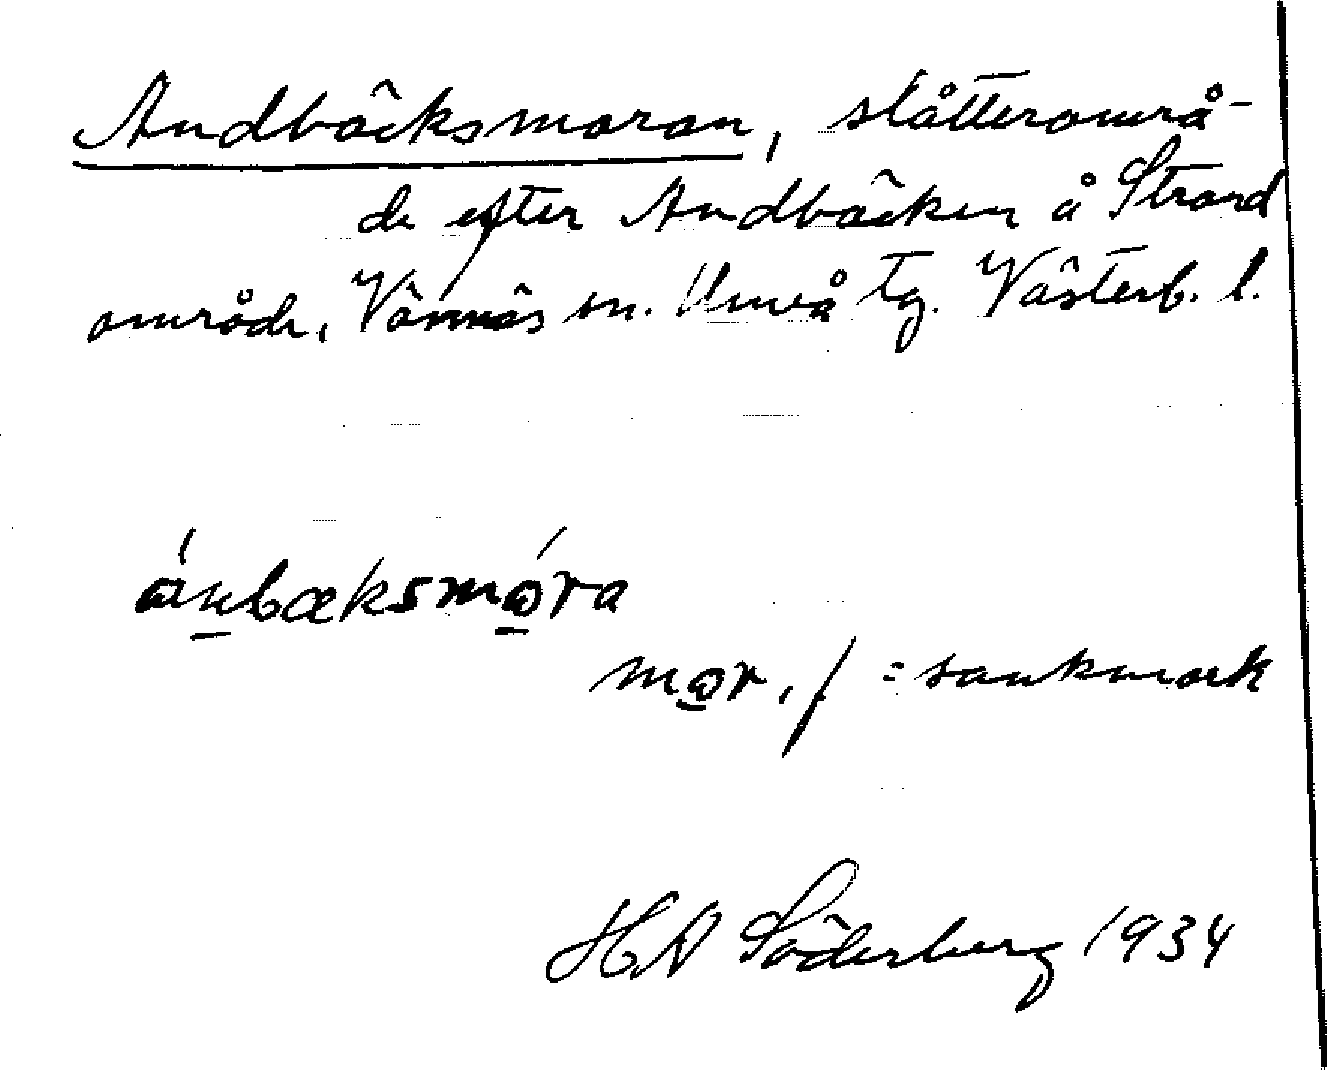 Andbäcksmoran, slåtterområ-
de efter Andbäcken å Strand
område, Vännäs sn. Umeå tg. Västerb. l.
ánbæksmóra
mor, f = sankmark
HA Söderberg 1934